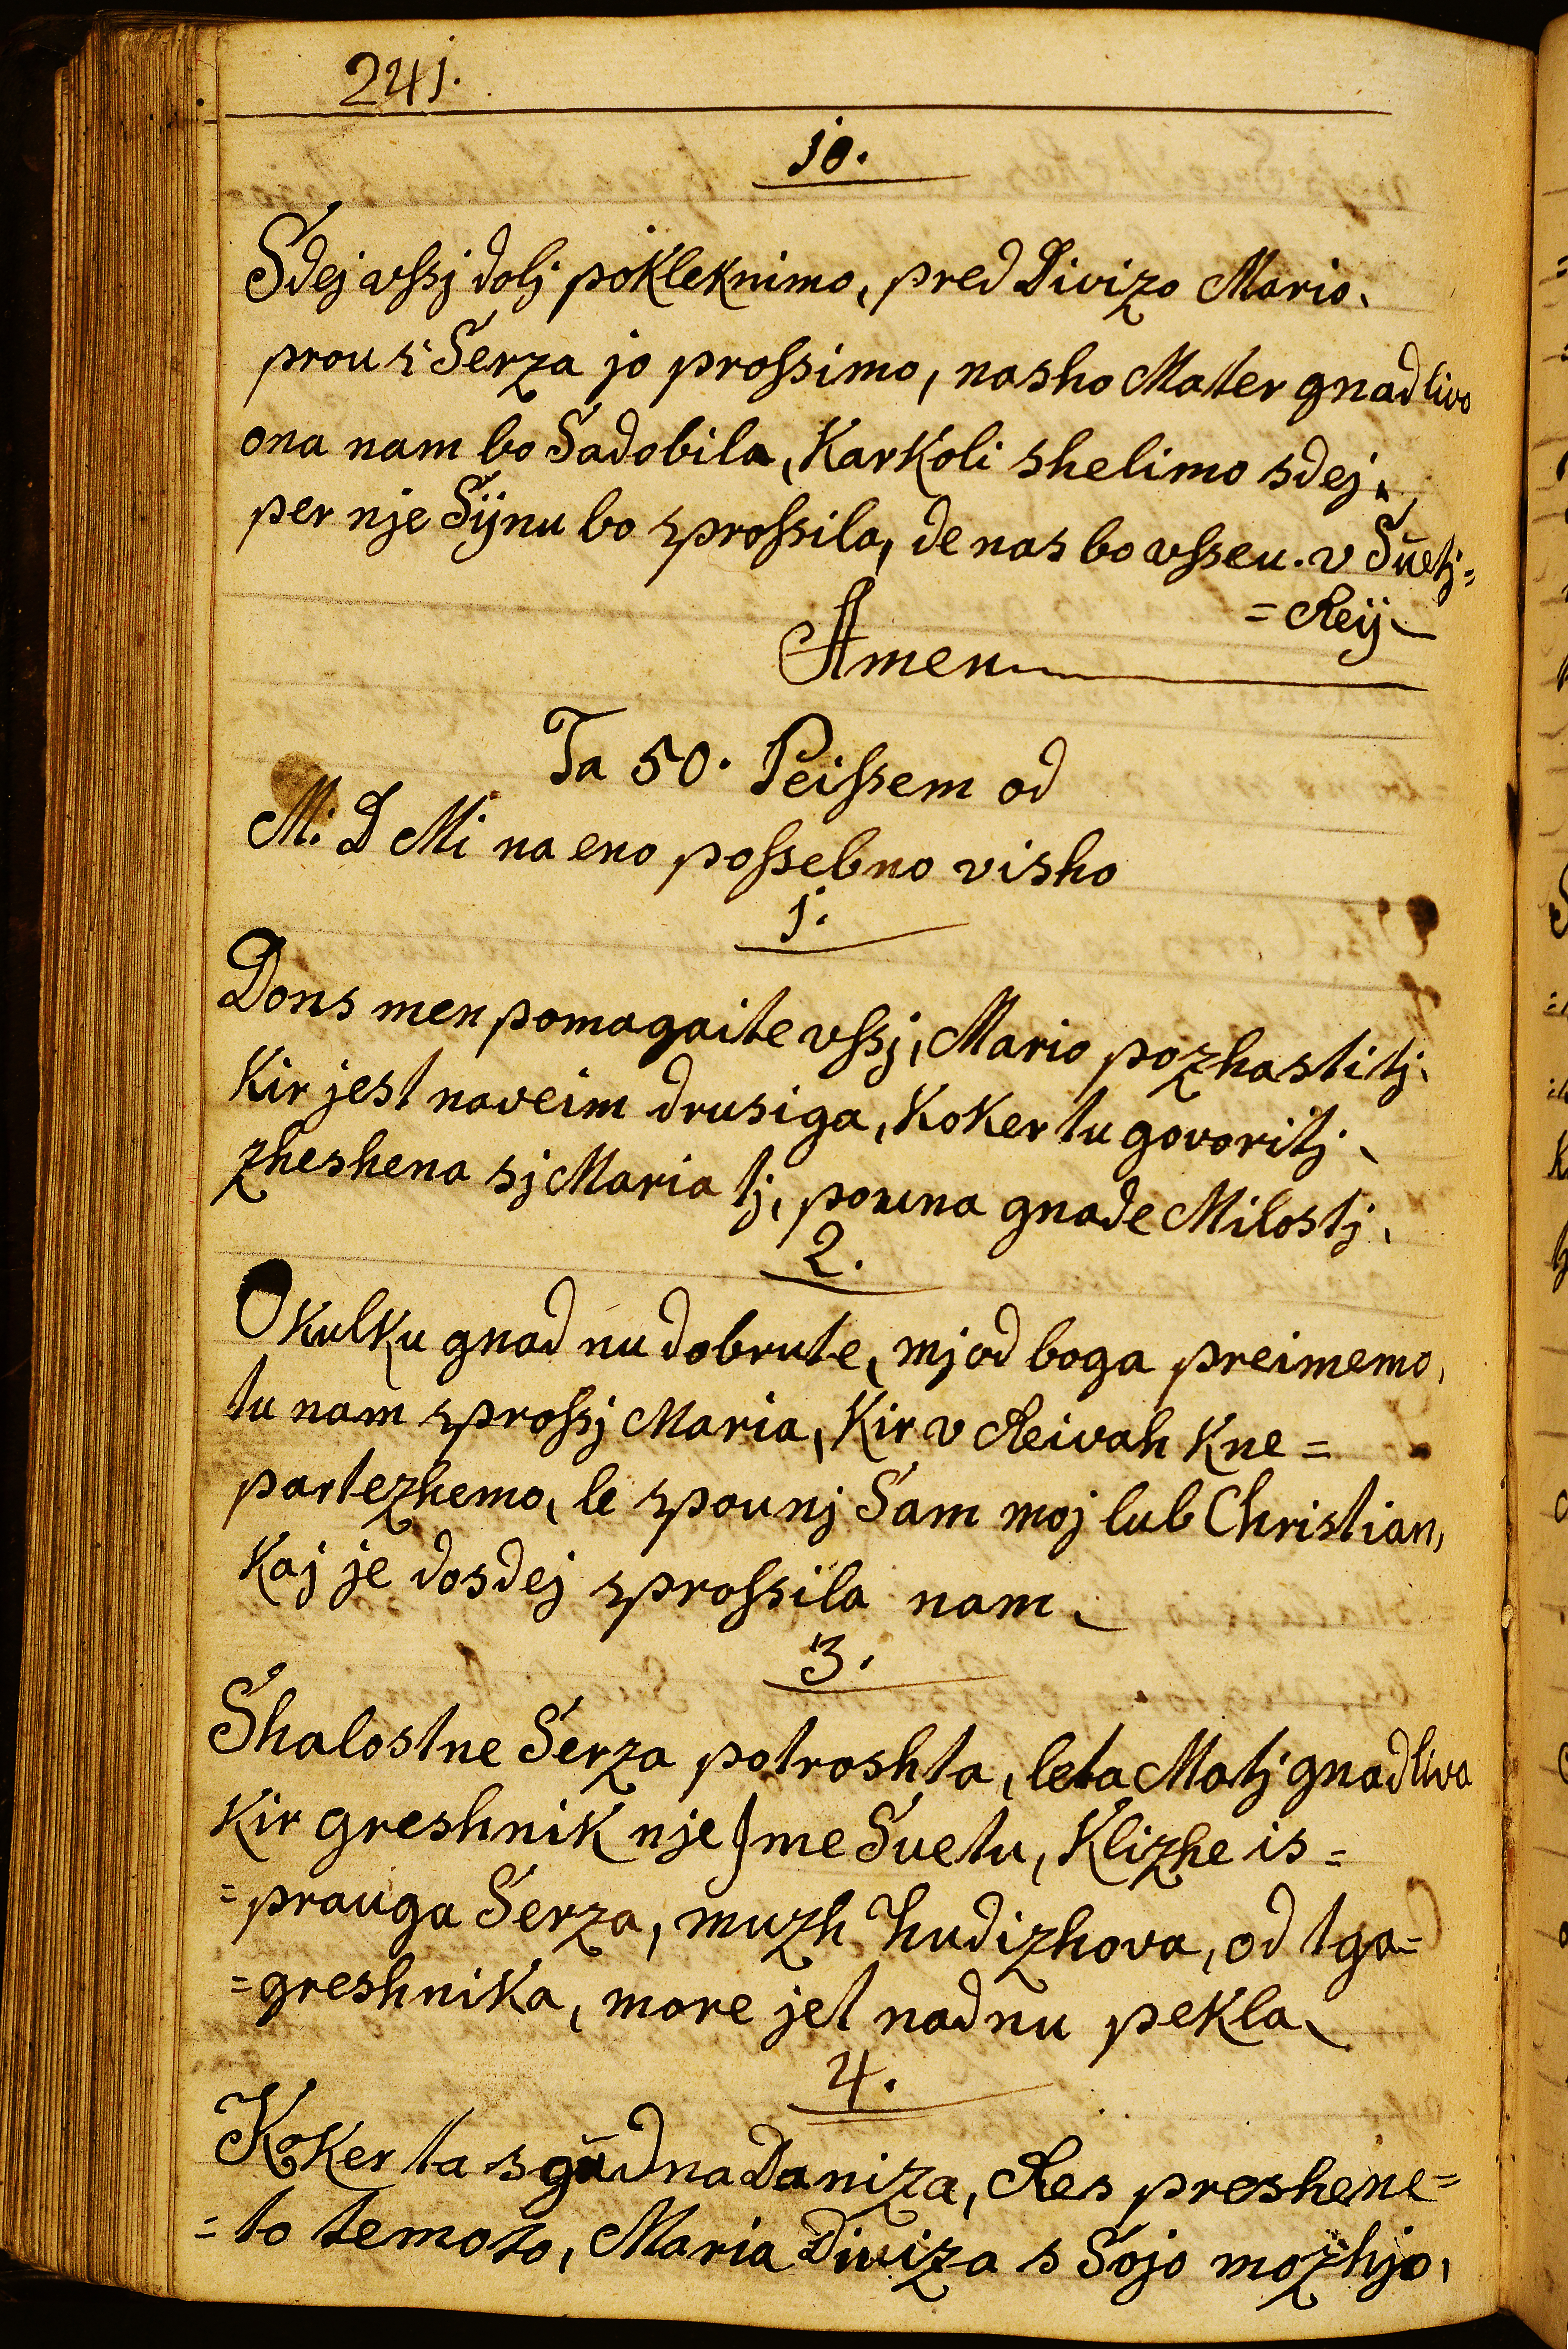 241.
10.
Sdej vſsj dolj pokleknimo, pred Divizo Mario,
prou s' Serza jo proſsimo, nasho Mater gnadlivo
ona nam bo Sadobila, Karkoli shelimo sdej,
per nje Sÿnu bo sproſsila, de nas bo vſseu. v Suetj=
=Reÿ
Amen
Ta 50. Peiſsem od
M: D Mi na eno poſsebno visho
1.
Dons men pomagaite vſsj, Mario pozhastitj,
Kir jest naveim drusiga, Koker tu govoritj,
zheshena sj Maria tj, pouna gnade Milostj,
2.
O kulku gnad nu dobrute, mj od boga preimemo,
tu nam sproſsj Maria, Kir v Reivah Kne=
partezhemo, le spounj Sam moj lub Christian,
Kaj je dosdej sproſsila nam
3.
Shalostne Serza potroshta, leta Matj gnadliva
Kir greshnik nje Jme Suetu, Klizhe is=
=prauga Serza, muzh hudizhova, od tga=
=greshnika, more jet nadnu pekla
4.
Koker ta sgüdna Daniza, Res preshene=
=to temoto, Maria Diviza s Sojo mozhjo,